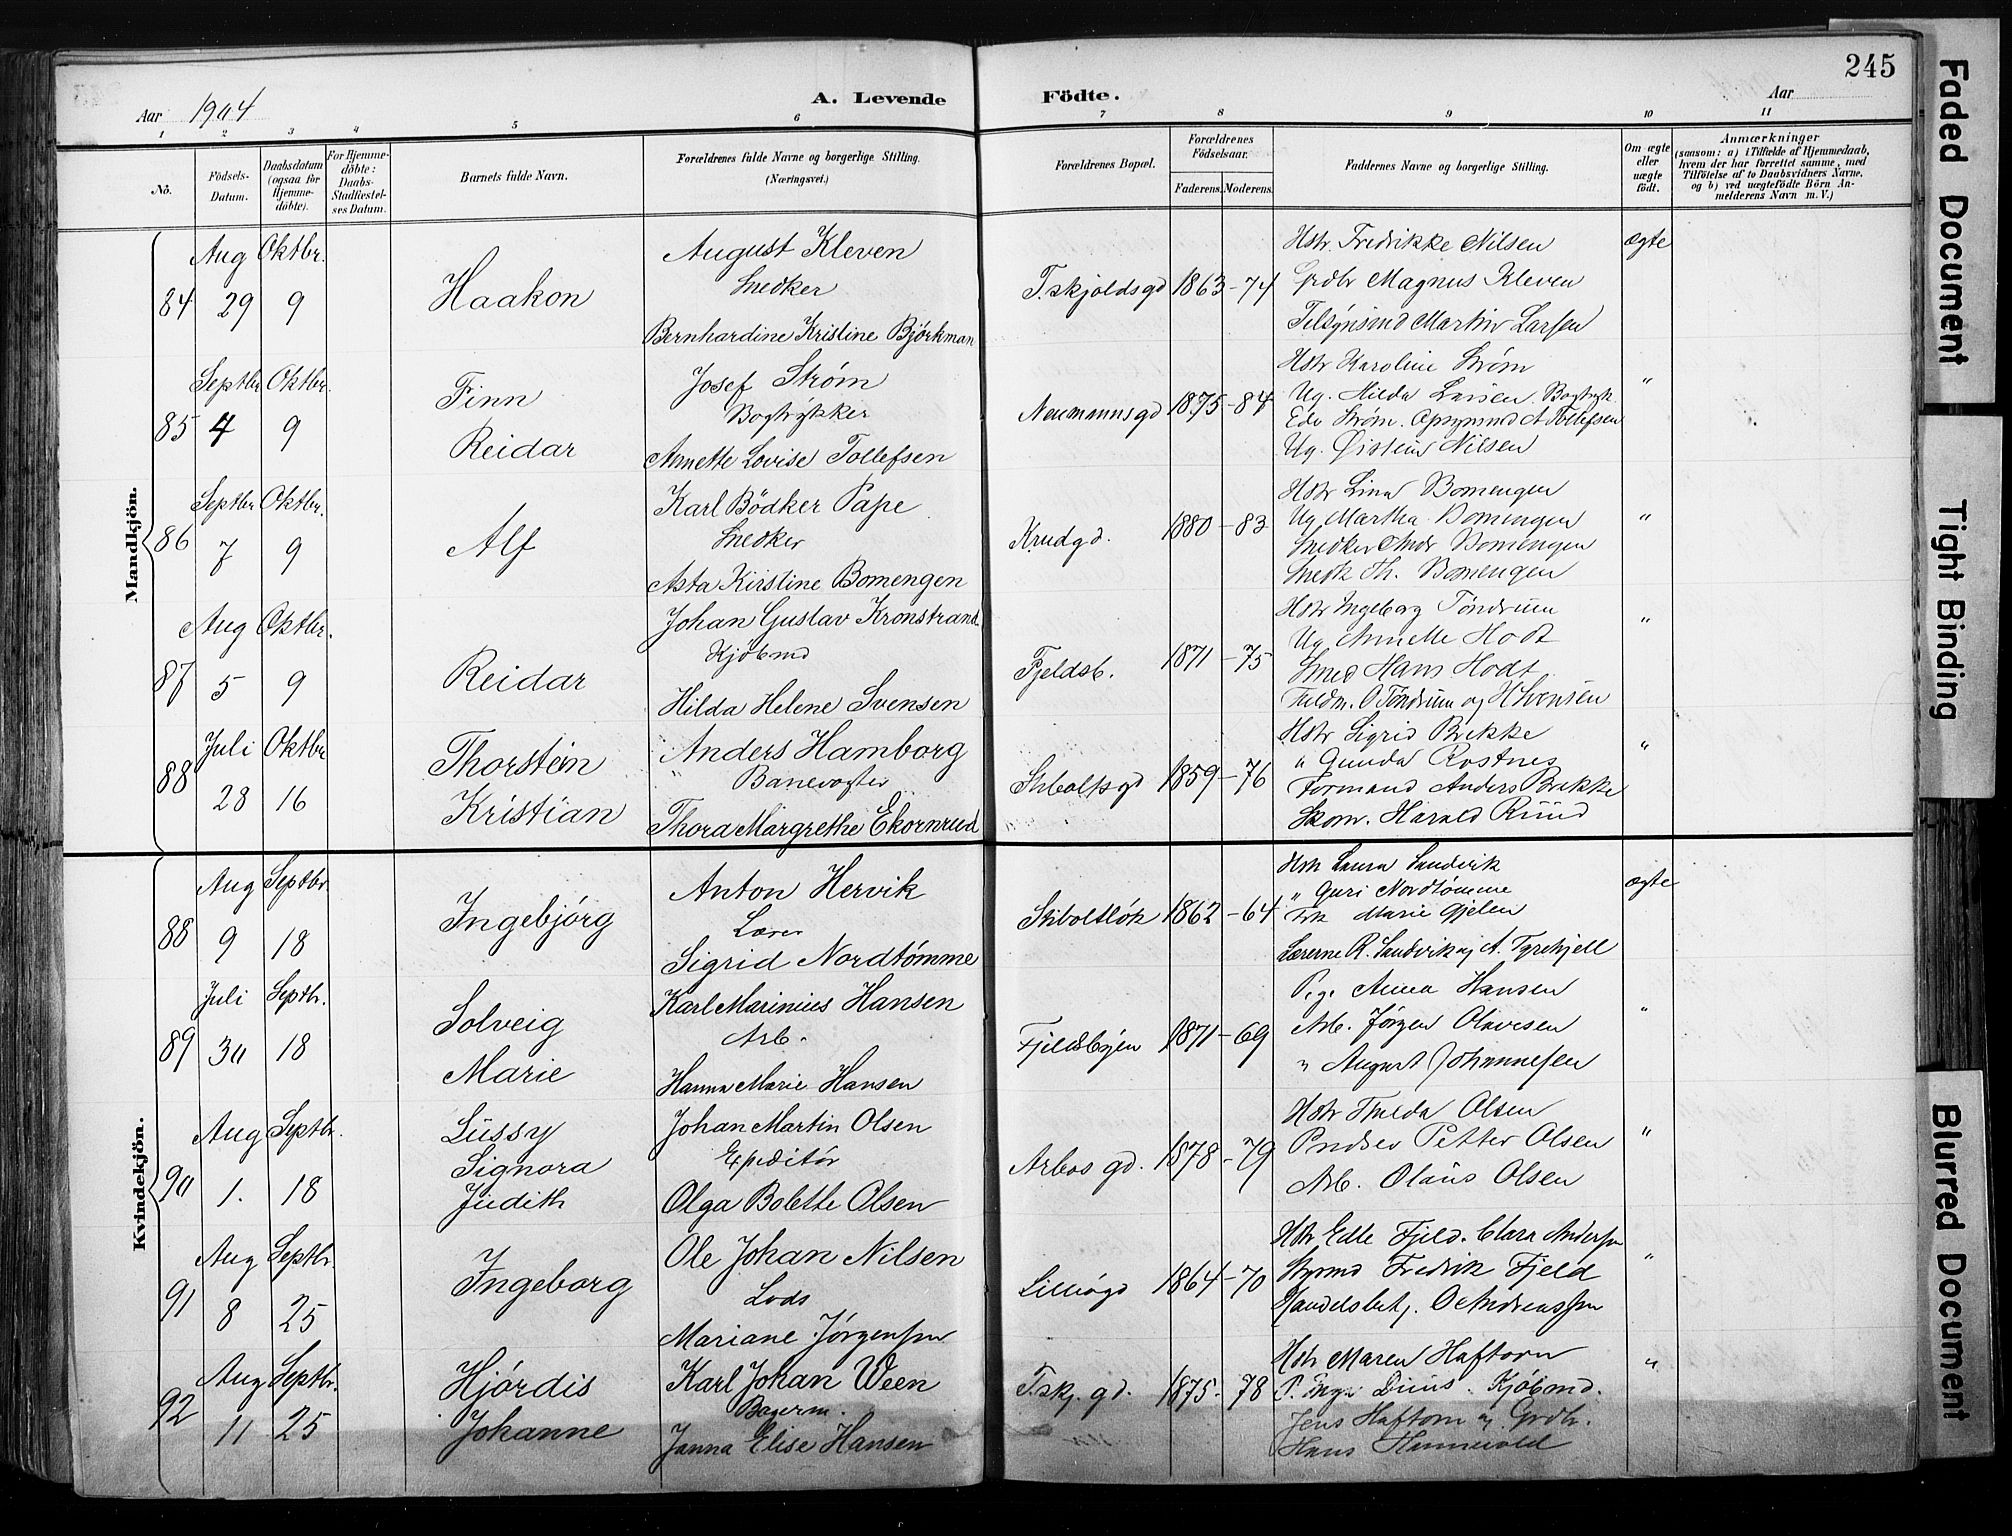 245
Aar 1904
A. Levende Födte.
Aar
1 2 3 4 5 6 7 8 9 10 11
Nô. Födsels-Datum. Daabsdatum (ogsaa for Hjemmedöbte). For Hjemmedöbte: Daabs-Stadfæstelses Datum. Barnets fulde Navn. Forældrenes fulde Navne og borgerlige Stilling. (Næringsvei.) Forældrenes Bopæl. Forældrenes Födselsaar. Faderens. Moderens. Faddernes Navne og borgerlige Stilling. Om ægte eller uægte födt. Anmærkninger (saasom: a) i Tilfælde af Hjemmedaab, hvem der har forrettet samme, med Tilföielse af to Daabsvidners Navne, og b) ved uægtefödte Börn Anmelderens Navn m. V.)
Mandkjön.
Aug Oktbr. August Kleven Hstr. Fredrikke Nilsen ægte
84 29 9 Haakon Snedker T.skjoldsgd 1863 - 74 Grdbr Magnus Kleven
Bernhardine Kristine Björkman Tilsynsmd Martin Larsen
Septbr Oktbr. Finn Josef Strøm Hstr Karoline Strøm "
85 4 9 Bogtrykker Neumannsgd 1875 - 84 Ug. Hilda Larsen. Bogtryk.
Edv Strøm. Opsynsmd A Tollefsen
Reidar Annette Lovise Tollefsen Ug. Øistein Nilsen
Septbr Oktbr. Karl Bödker Pape Hstr Lina Bomengen "
86 7 9 Alf Snedker Krudgd. 1880 - 83 Ug Martha Bomengen
Snedker Andr Bomengen
Asta Kirstine Bomengen Snedk Th. Bomengen
Aug Oktbr. Johan Gustav Kronstrand Hstr Ingeborg Töndrum "
87 5 9 Reidar Kjöbmd Fjeldsb. 1871 - 75 Ug Annette Hodt
Smed Hans Hodt
Hilda Helene Svensen Fuldm. O Töndrum og H Svensen
Juli Oktbr Thorstein Anders Hamborg Hstr Sigrid Brekke "
88 28 16 Banevogter Stiboltsgd 1859 - 76 " Gunda Rostnes
Formand Anders Brekke
Kristian Thora Margrethe Ekornrud Skom. Harald Ruud
Kvindekjön.
Aug Septbr. Anton Hervik Hstr Laura Sandvik ægte
88 9 18 Ingebjörg Lærer Stiboltlök 1862 - 64 " Guri Nordtömme
Frk Marie Gjelen
Sigrid Nordtömme Lærerne R. Sandvik og A. Tyrihjell
Juli Septbr. Solveig Karl Marinius Hansen Pige Anna Hansen "
89 30 18 Arb. Fjeldsbyen 1871 - 69 Arb. Jörgen Olavesen
Marie Hanna Marie Hansen " August Johannesen
Aug Septbr. Lussy Johan Martin Olsen Hstr Thilda Olsen "
90 1. 18 Signora Expeditör Arbos gd. 1878 - 79 Petter Olsen
Judith Olga Bolette Olsen Arb. Olaus Olsen
Aug Septbr. Ole Johan Nilsen Hstr Elle Fjeld. Clara Andersen "
91 8 25 Ingeborg Lods 1864 - 70 Styrmd Fredrik Fjeld
Mariane Jörgensen Handelsbetj. O Andreassen
Aug Septbr. Hjördis Karl Johan Ween Hstr Maren Haftorn "
92 11 25 Bagerm. T.skj. gd. 1875 - 78 Kjöbmd.
Johanne Janna Elise Hansen Jens Haftorn og Grdbr.
Hans Hannevold
Faded Document
Tight Binding
Blurred Document